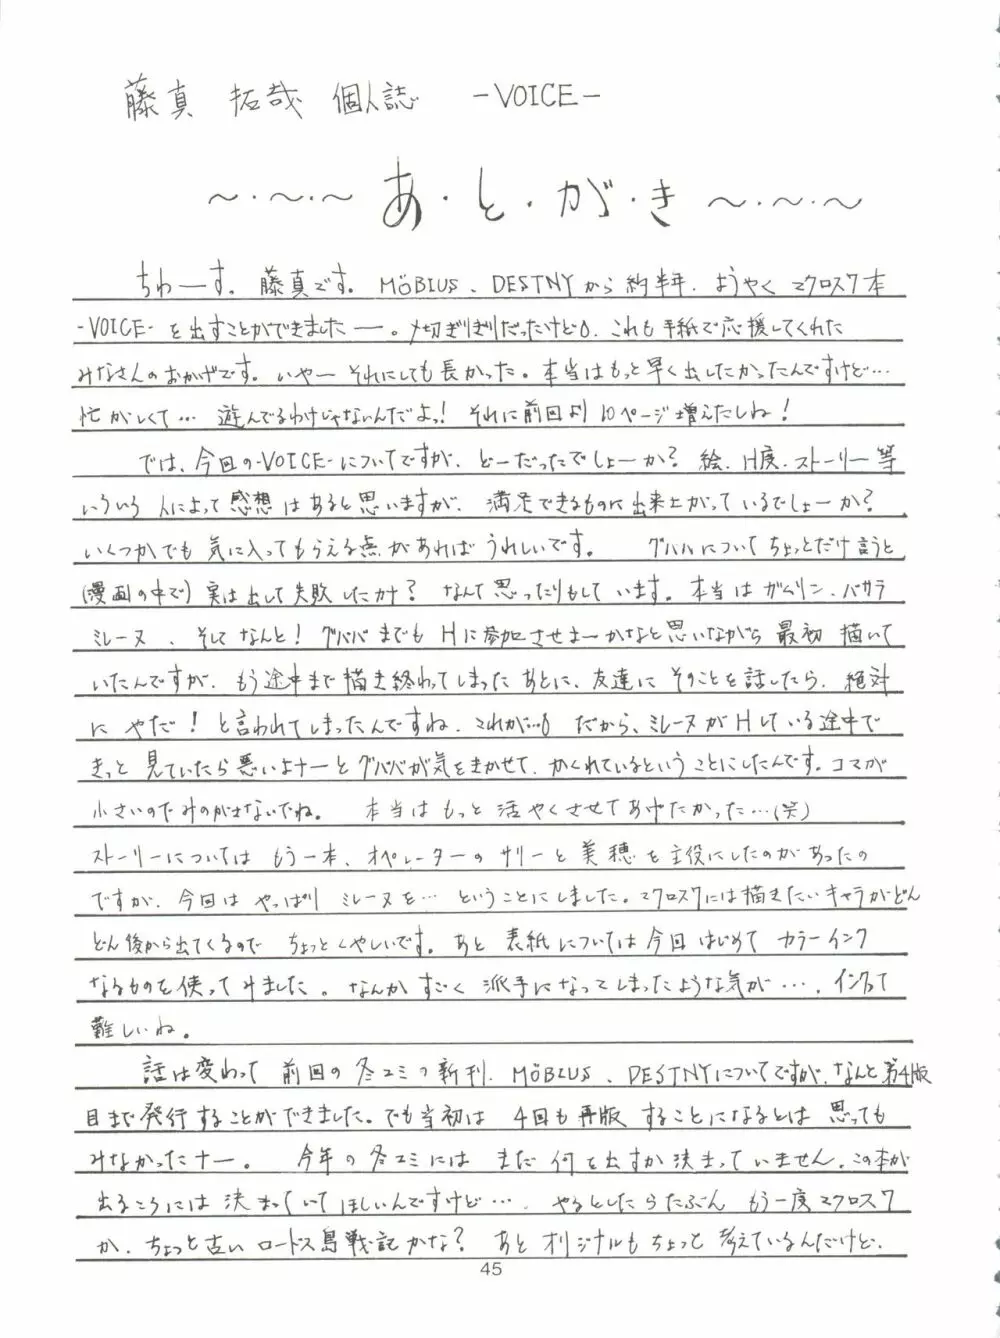 藤真 拓哉 個人誌 -VOICE-
～・～・～ あ・と・が・き ～・～・～
ちわーす。藤真です。MÖBIUS、DESTNYから約半年、ようやくマクロス7本
-VOICE-を出すことができましたー。〆切ぎりぎりだったけど。これも手紙で応援してくれた
みなさんのおかげです。いやー それにしても長かった。本当はもっと早く出したかったんですけど…
忙がしくて… 遊んでるわけじゃないんだよっ！ それに前回より10ページ増えたしね！
では、今回の-VOICE-についてですが、どーだったでしょーか？絵、H度、ストーリー等
いろいろ人によって感想はあると思いますが、満足できるものに出来上がっているでしょーか？
いくつかでも気に入ってもらえる点があればうれしいです。 グババについてちょっとだけ言うと
(漫画の中で)実は出して失敗したカナ？なんて思ったりもしています。本当はガムリン、バサラ
ミレーヌ、そしてなんと！グババまでもHに参加させよーかなと思いながら最初描いて
いたんですが、もう途中まで描き終わってしまったあとに、友達にそのことを話したら、絶対
にやだ！と言われてしまったんですね、これが… だから、ミレーヌがHしている途中で
きっと見ていたら悪いよナーとグババが気をきかせて、かくれているということにしたんです。コマが
小さいのでみのがさないでね。 本当はもっと活やくさせてあげたかった…(笑)
ストーリーについてはもう一本、オペレーターのサリーと美穂を主役にしたのがあったの
ですが、今回はやっぱりミレーヌを… ということにしました。マクロス7には描きたいキャラがどん
どん後から出てくるのでちょっとくやしいです。あと表紙については今回はじめてカラーインク
なるものを使ってみました。なんかすごく派手になってしまったような気が…、インクって
難しいね。
話は変わって前回の冬コミの新刊、MÖBIUS、DESTNYについてですが、なんと第4版
目まで発行することができました。でも当初は4回も再版することになるとは思っても
みなかったナー。 今年の冬コミにはまだ何を出すか決まっていません。この本が
出るころには決まっていてほしいんですけど…、やるとしたらたぶんもう一度マクロス7
か、ちょっと古いロードス島戦記かな？あとオリジナルもちょっと考えているんだけど、
45